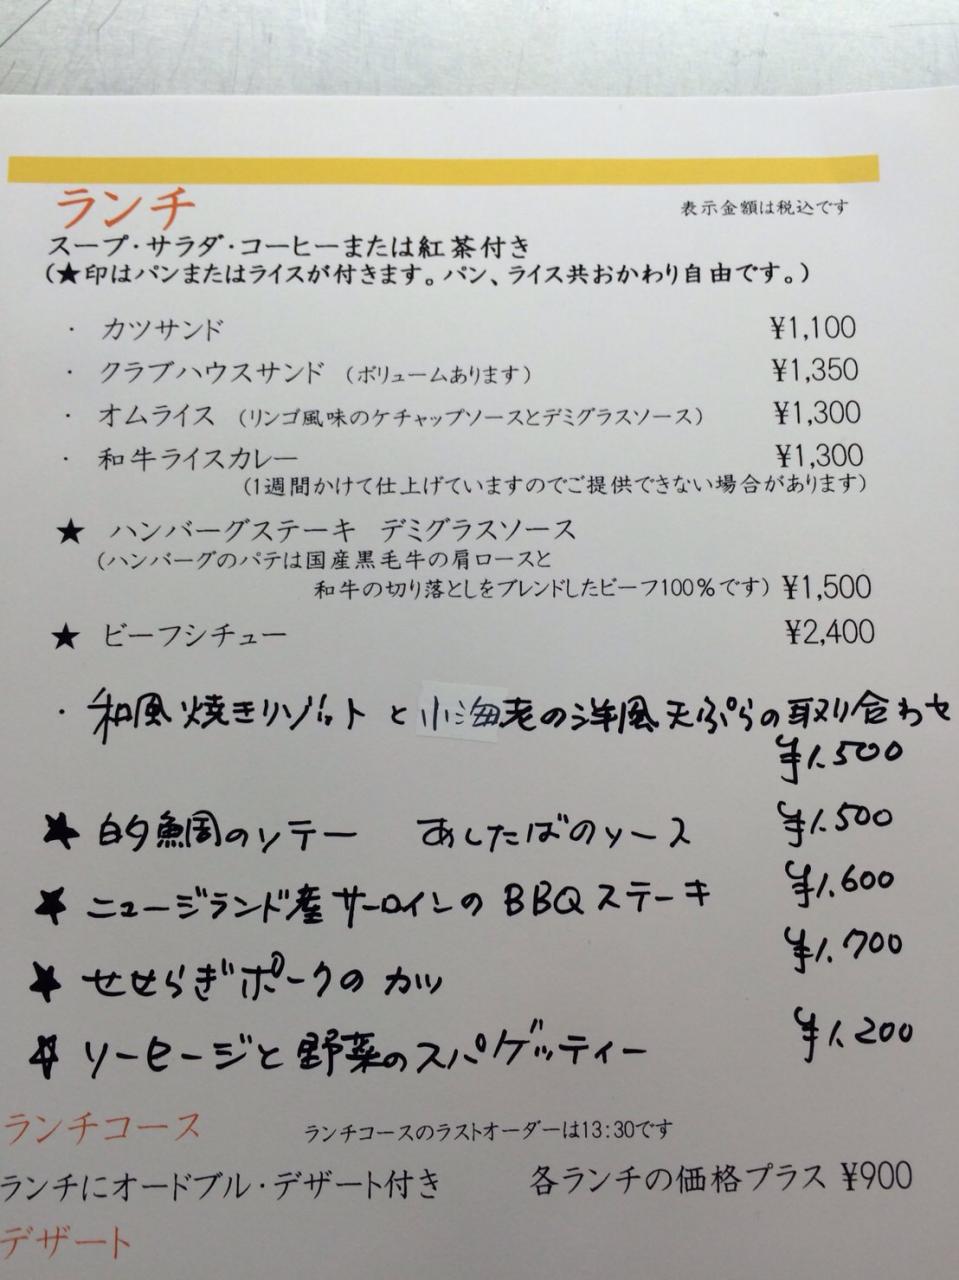 ランチ
表示金額は税込です
スープ・サラダ・コーヒーまたは紅茶付き
(★印はパンまたはライスが付きます。パン、ライス共おかわり自由です。)
・ カツサンド ¥1,100
・ クラブハウスサンド (ボリュームあります) ¥1,350
・ オムライス (リンゴ風味のケチャップソースとデミグラスソース) ¥1,300
・ 和牛ライスカレー ¥1,300
(1週間かけて仕上げていますのでご提供できない場合があります)
★ ハンバーグステーキ デミグラスソース
(ハンバーグのパテは国産黒毛牛の肩ロースと
和牛の切り落としをブレンドしたビーフ100%です) ¥1,500
★ ビーフシチュー ¥2,400
・ 和風焼きリゾットと小海老の洋風天ぷらの取り合わせ
¥1.500
★ 的鯛のソテー あしたばのソース ¥1.500
★ ニュージランド産サーロインのBBQステーキ ¥1.600
★ せせらぎポークのカツ ¥1.700
☆ ソーセージと野菜のスパゲッティー ¥1.200
ランチコース ランチコースのラストオーダーは13:30です
ランチにオードブル・デザート付き 各ランチの価格プラス ¥900
デザート